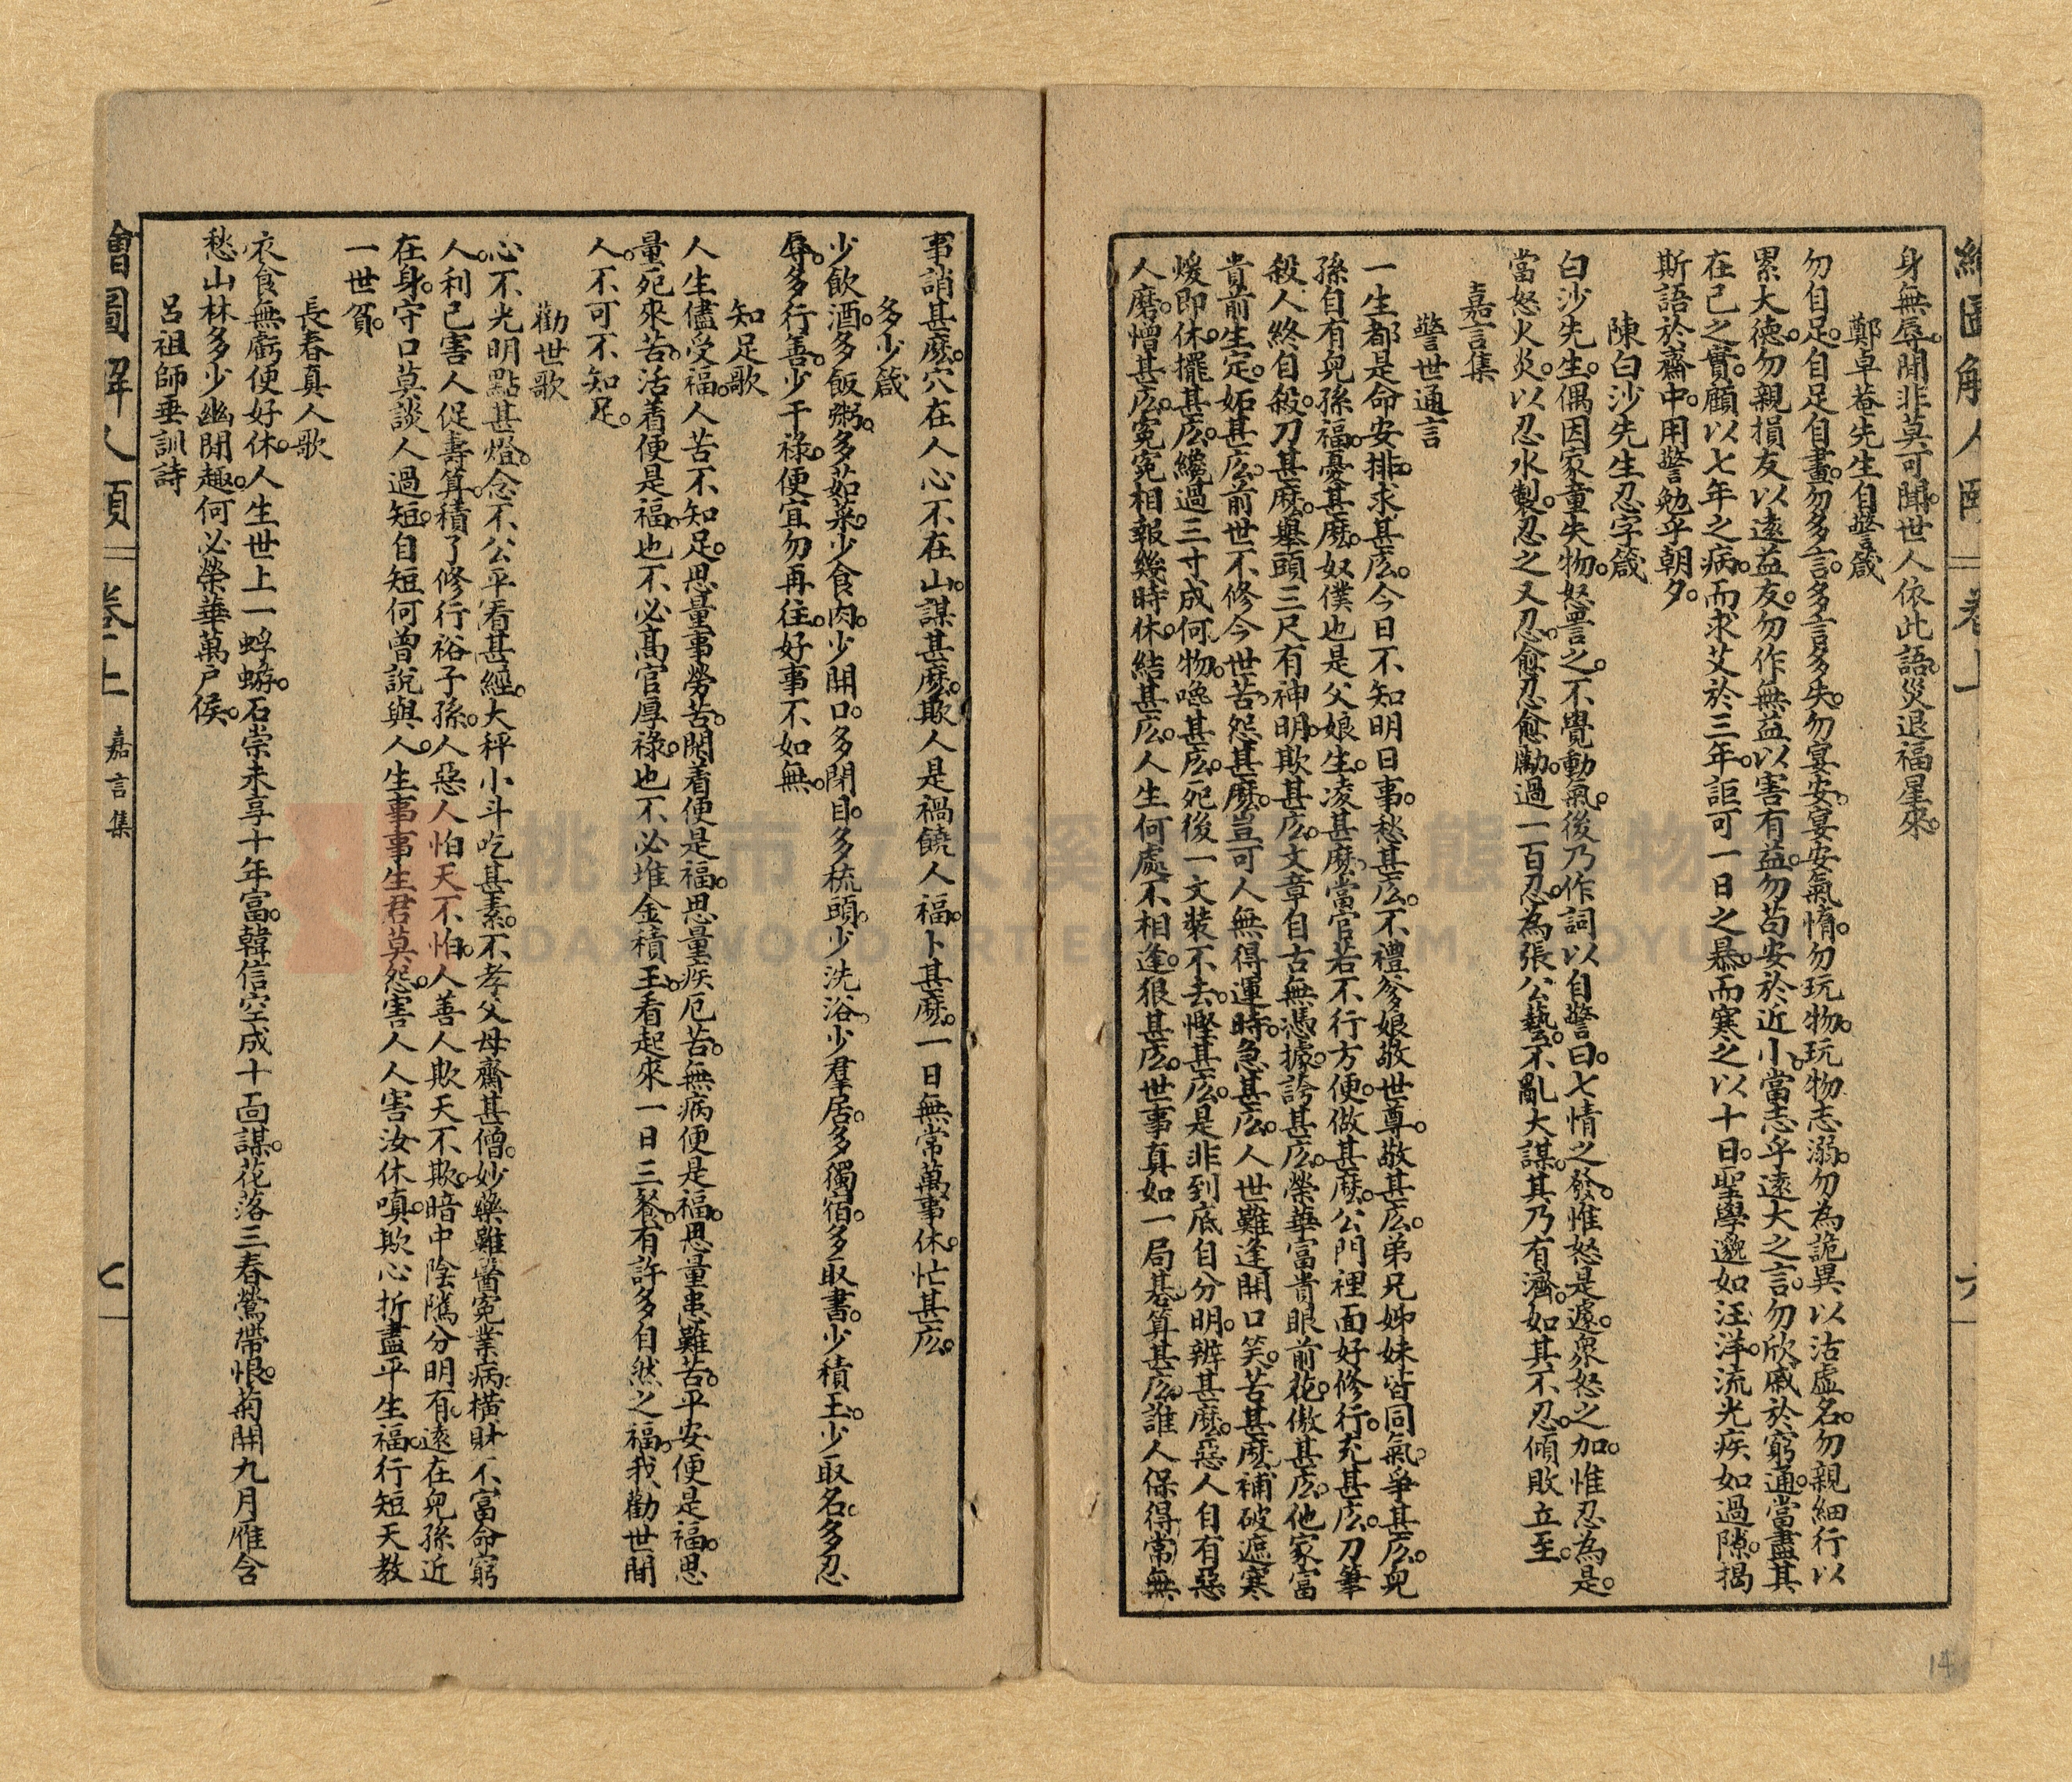 身無辱。閒非莫可聞。世人依此語。災退福星來。
鄭卓菴先生自警箴
勿自足。自足自畫。勿多言。多言多失。勿宴安。宴安氣惰。勿玩物。玩物志溺。勿為詭異以沽虛名。勿親細行以
累大德。勿親損友以遠益友。勿作無益以害有益。勿苟安於近小。當志乎遠大之言。勿欣戚於窮通。當盡其
在己之實。顧以七年之病。而求艾於三年。詎可一日之暴。而寒之以十日。聖學邈如汪洋。流光疾如過隙。揭
斯語於齋中。用警勉乎朝夕。
陳白沙先生忍字箴
白沙先生。偶因家童失物。怒詈之。不覺動氣。後乃作詞以自警曰。七情之發。惟怒是遽。眾怒之加。惟忍為是。
當怒火炎。以忍水製。忍之又忍。愈忍愈勵。過一百忍。為張公藝。不亂大謀。其乃有濟。如其不忍。傾敗立至。
嘉言集
警世通言
一生都是命安排。求甚庅。今日不知明日事。愁甚庅。不禮爹娘敬世尊。敬甚庅。弟兄姊妹皆同氣。爭甚庅。兒
孫自有兒孫福。憂甚麽。奴僕也是父娘生。凌甚麽。當官若不行方便。做甚麽。公門裡面好修行。充甚庅。刀筆
殺人終自殺。刀甚麽。舉頭三尺有神明。欺甚庅。文章自古無憑據。誇甚庅。榮華富貴眼前花。傲甚庅。他家富
貴前生定。妬甚庅。前世不修今世苦。怨甚麽。豈可人無得運時。急甚庅。人世難逢開口笑。苦甚麽。補破遮寒
煖即休。擺甚庅。纔過三寸成何物。喚甚庅。死後一文裝不去。慳甚庅。是非到底自分明。辨甚麽。惡人自有惡
人磨。憎甚庅。冤冤相報幾時休。結甚庅。人生何處不相逢。狠甚庅。世事真如一局碁。算甚庅。誰人保得常無
事。誚甚麽。穴在人心不在山。謀甚麽。欺人是禍饒人福。卜甚麽。一日無常萬事休。忙甚庅。
多少箴
少飲酒。多飯粥。多茹菜。少食肉。少開口。多閉目。多梳頭。少洗浴。少羣居。多獨宿。多取書。少積玉。少取名。多忍
辱。多行善。少干祿。便宜勿再往。好事不如無。
知足歌
人生儘受福。人苦不知足。思量事勞苦。閑着便是福。思量疾厄苦。無病便是福。思量患難苦。平安便是福。思
量死來苦。活着便是福。也不必高官厚祿。也不必堆金積玉。看起來一日三餐。有許多自然之福。我勸世間
人。不可不知足。
勸世歌
心不光明點甚燈。念不公平看甚經。大秤小斗吃甚素。不孝父母齋甚僧。妙藥雖醫冤業病。橫財不富命窮
人。利己害人促壽算。積了修行裕子孫。人惡人怕天不怕。人善人欺天不欺。暗中陰隲分明有。遠在兒孫近
在身。守口莫談人過短。自短何曾說與人。生事事生君莫怨。害人人害汝休嗔。欺心折盡平生福。行短天教
一世貧。
長春真人歌
衣食無虧便好休。人生世上一蜉蝣。石崇未享十年富。韓信空成十面謀。花落三春鶯帶恨。菊開九月雁含
愁。山林多少幽閒趣。何必榮華萬戶侯。
呂祖師垂訓詩
繪圖解人頤 卷上 嘉言集 七